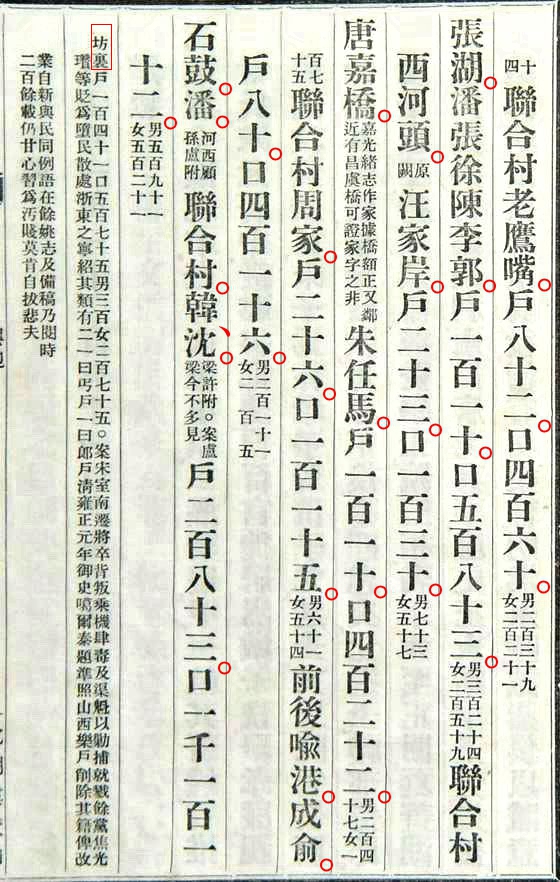 十四聯合村老鷹嘴戶八十二口四百六十男二百三十九女二百二十一
張湖潘張徐陳李郭戶一百一十口五百八十三男三百二十四女二百五十九聯合村
西河頭原闕汪家岸戶二十三口一百三十男七十三女五十七
唐嘉橋嘉光緒志作家據橋額正又鄰近有昌虞橋可證家字之非朱任馬戶一百一十口四百二十二男二百四十七女一
百七十五聯合村周家戶二十六口一百一十五男六十一女五十四前後喩港成俞
戶八十口四百一十六男二百一十一女二百五
石鼓潘河西顧孫盧附聯合村韓沈梁許附○案盧梁今不多見戶二百八十三口一千一百一
十二男五百九十一女五百二十一
坊裏戶一百四十一口五百七十五男三百女二百七十五○案宋室南遷將卒背叛乘機肆毒及渠魁以勦捕就戮餘黨焦光
瓚等貶爲墮民散處浙東之寧紹其類有二一曰丐戶一曰郎戶淸雍正元年御史噶爾泰題準照山西樂戶削除其籍俾改
業自新與民同例語在餘姚志及備稿乃閱時
二百餘載仍甘心習爲汚賤莫肯自拔悲夫